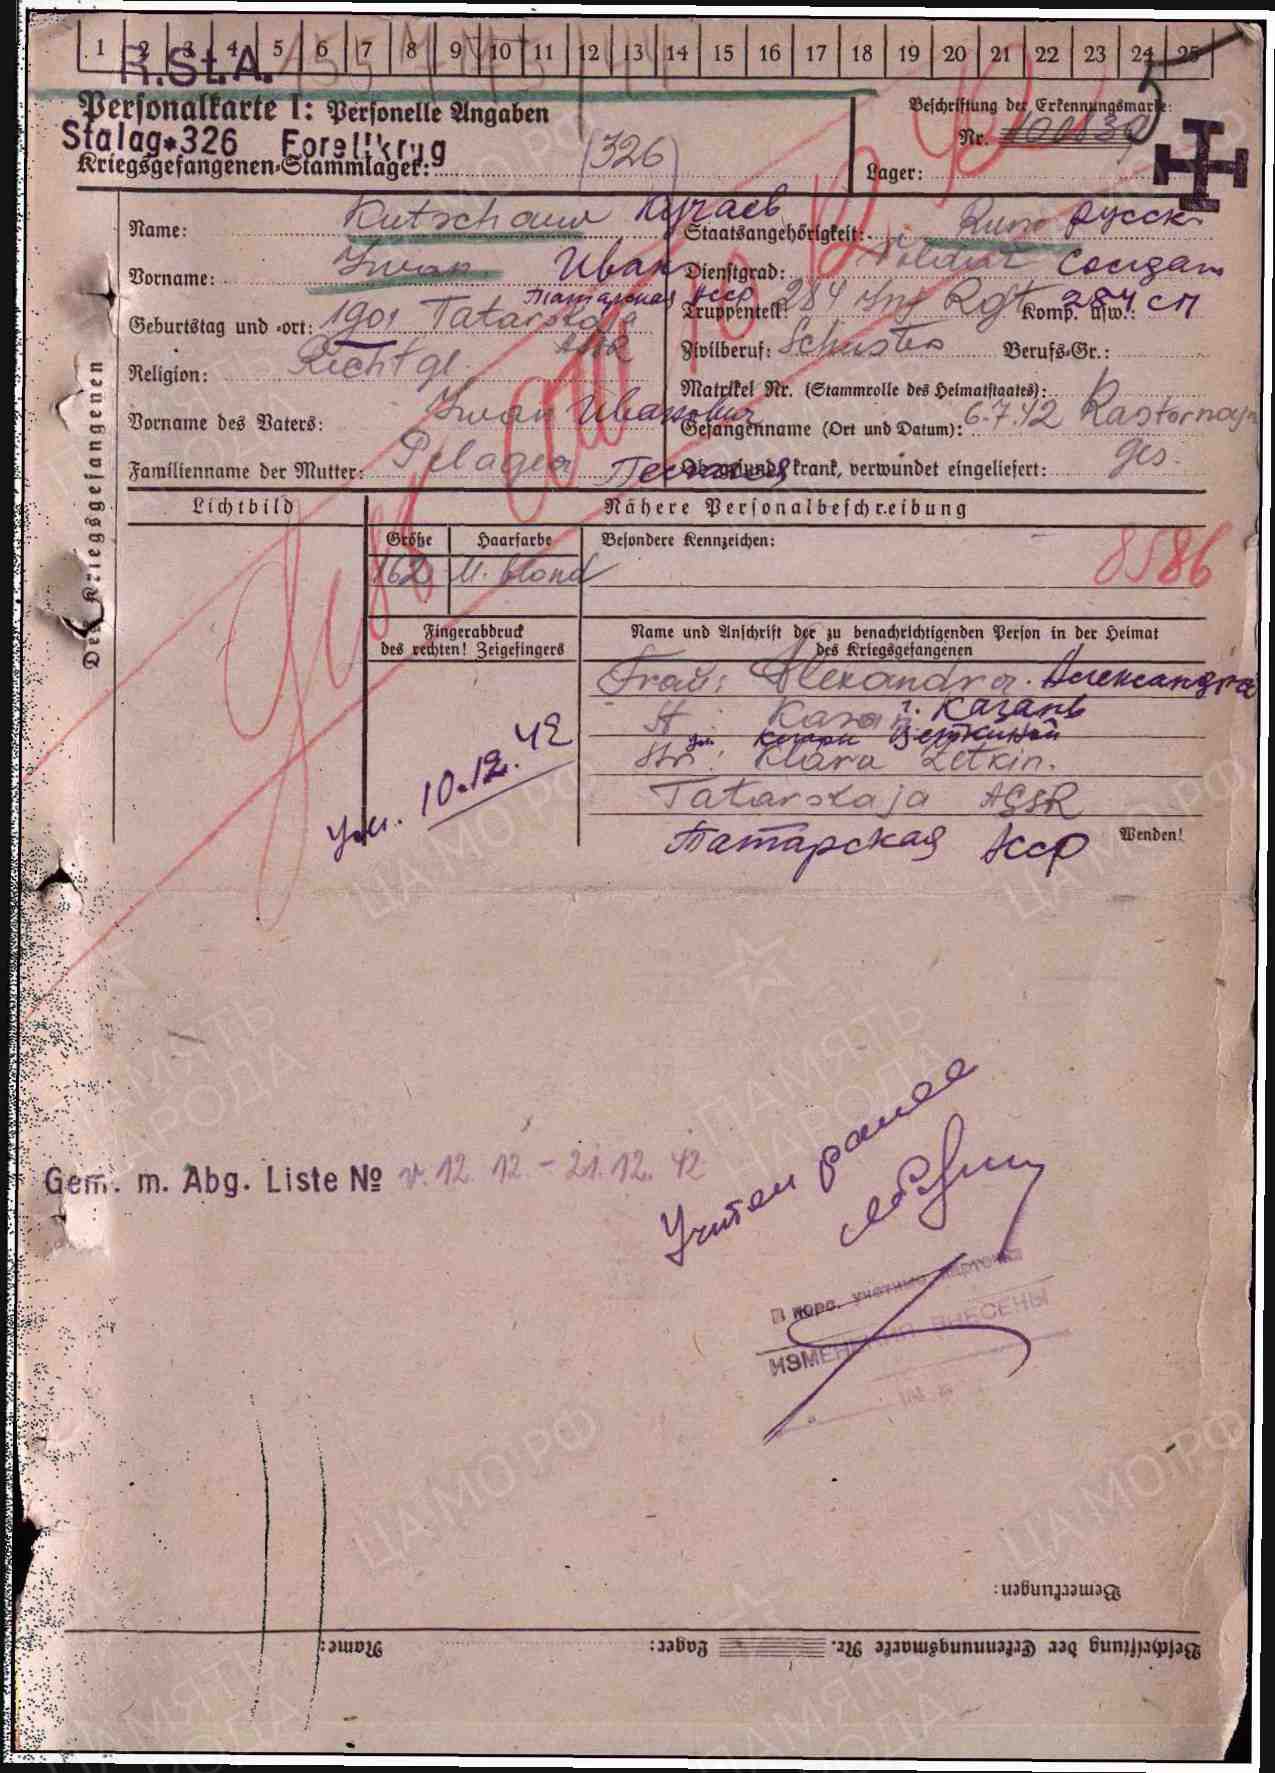 1 2 3 4 5 6 7 8 9 10 11 12 13 14 15 16 17 18 19 20 21 22 23 24 25
R.St.A.
Personalkarte I: Personelle Angaben
Beschriftung der Erkennungsmarke:
Stalag 326 Forellkrug
Nr.
Kriegsgefangenen-Stammlager: (326)
Lager:
Des Kriegsgefangenen
Name: Kutschaew Кучаев
Staatsangehörigkeit: Russe русск
Vorname: Iwan Иван
Dienstgrad: Soldat солдат
Татарская АССР
Geburtstag und -ort: 1901 Tatarskaja ASSR
Truppenteil: 284 Inf Rgt Komp. usw.: 284 сп
Zivilberuf: Schuster Berufs-Gr.:
Religion: Rechtgl.
Matrikel Nr. (Stammrolle des Heimatstaates):
Vorname des Vaters: Iwan Иванович
Gefangennahme (Ort und Datum): 6.7.42 Kastornaja
Familienname der Mutter: Pelagea
Ob gesund, krank, verwundet eingeliefert: Ges.
Lichtbild
Nähere Personalbeschreibung
Größe Haarfarbe Besondere Kennzeichen:
162 M. blond
8586
Fingerabdruck
des rechten! Zeigefingers
Name und Anschrift der zu benachrichtigenden Person in der Heimat
des Kriegsgefangenen
Frau: Alexandra. Александра
St. Kasan г. Казань
ул. Клары Цеткиной
Str. Klara Zetkin.
Tatarskaja ASSR
Татарская АССР
Wenden!
Ум. 10.12.42
Gem. m. Abg. Liste № v. 12.12.-21.12.42
Учтен ранее
учетные карточки
ИЗМЕНЕНИЯ ВНЕСЕНЫ
Bemerkungen:
Beschriftung der Erkennungsmarke Nr. Lager: Name:
ПАМЯТЬ НАРОДА
ЦАМО.РФ